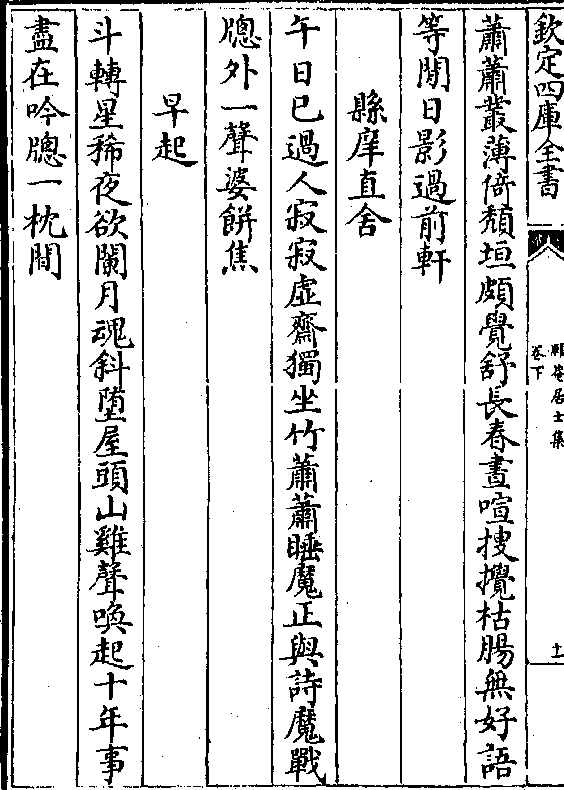 欽定四庫全書
蕭蕭叢薄倚頽垣頗覺舒長春晝喧搜攪枯腸無好語
等閒日影過前軒
縣庠直舍
午日已過人寂寂虛齋獨坐竹蕭蕭睡魔正與詩魔戰
牕外一聲婆餅焦
早起
斗轉星稀夜欲闌月魂斜墮屋頭山雞聲喚起十年事
盡在吟牕一枕間
居士集
卷下
十一